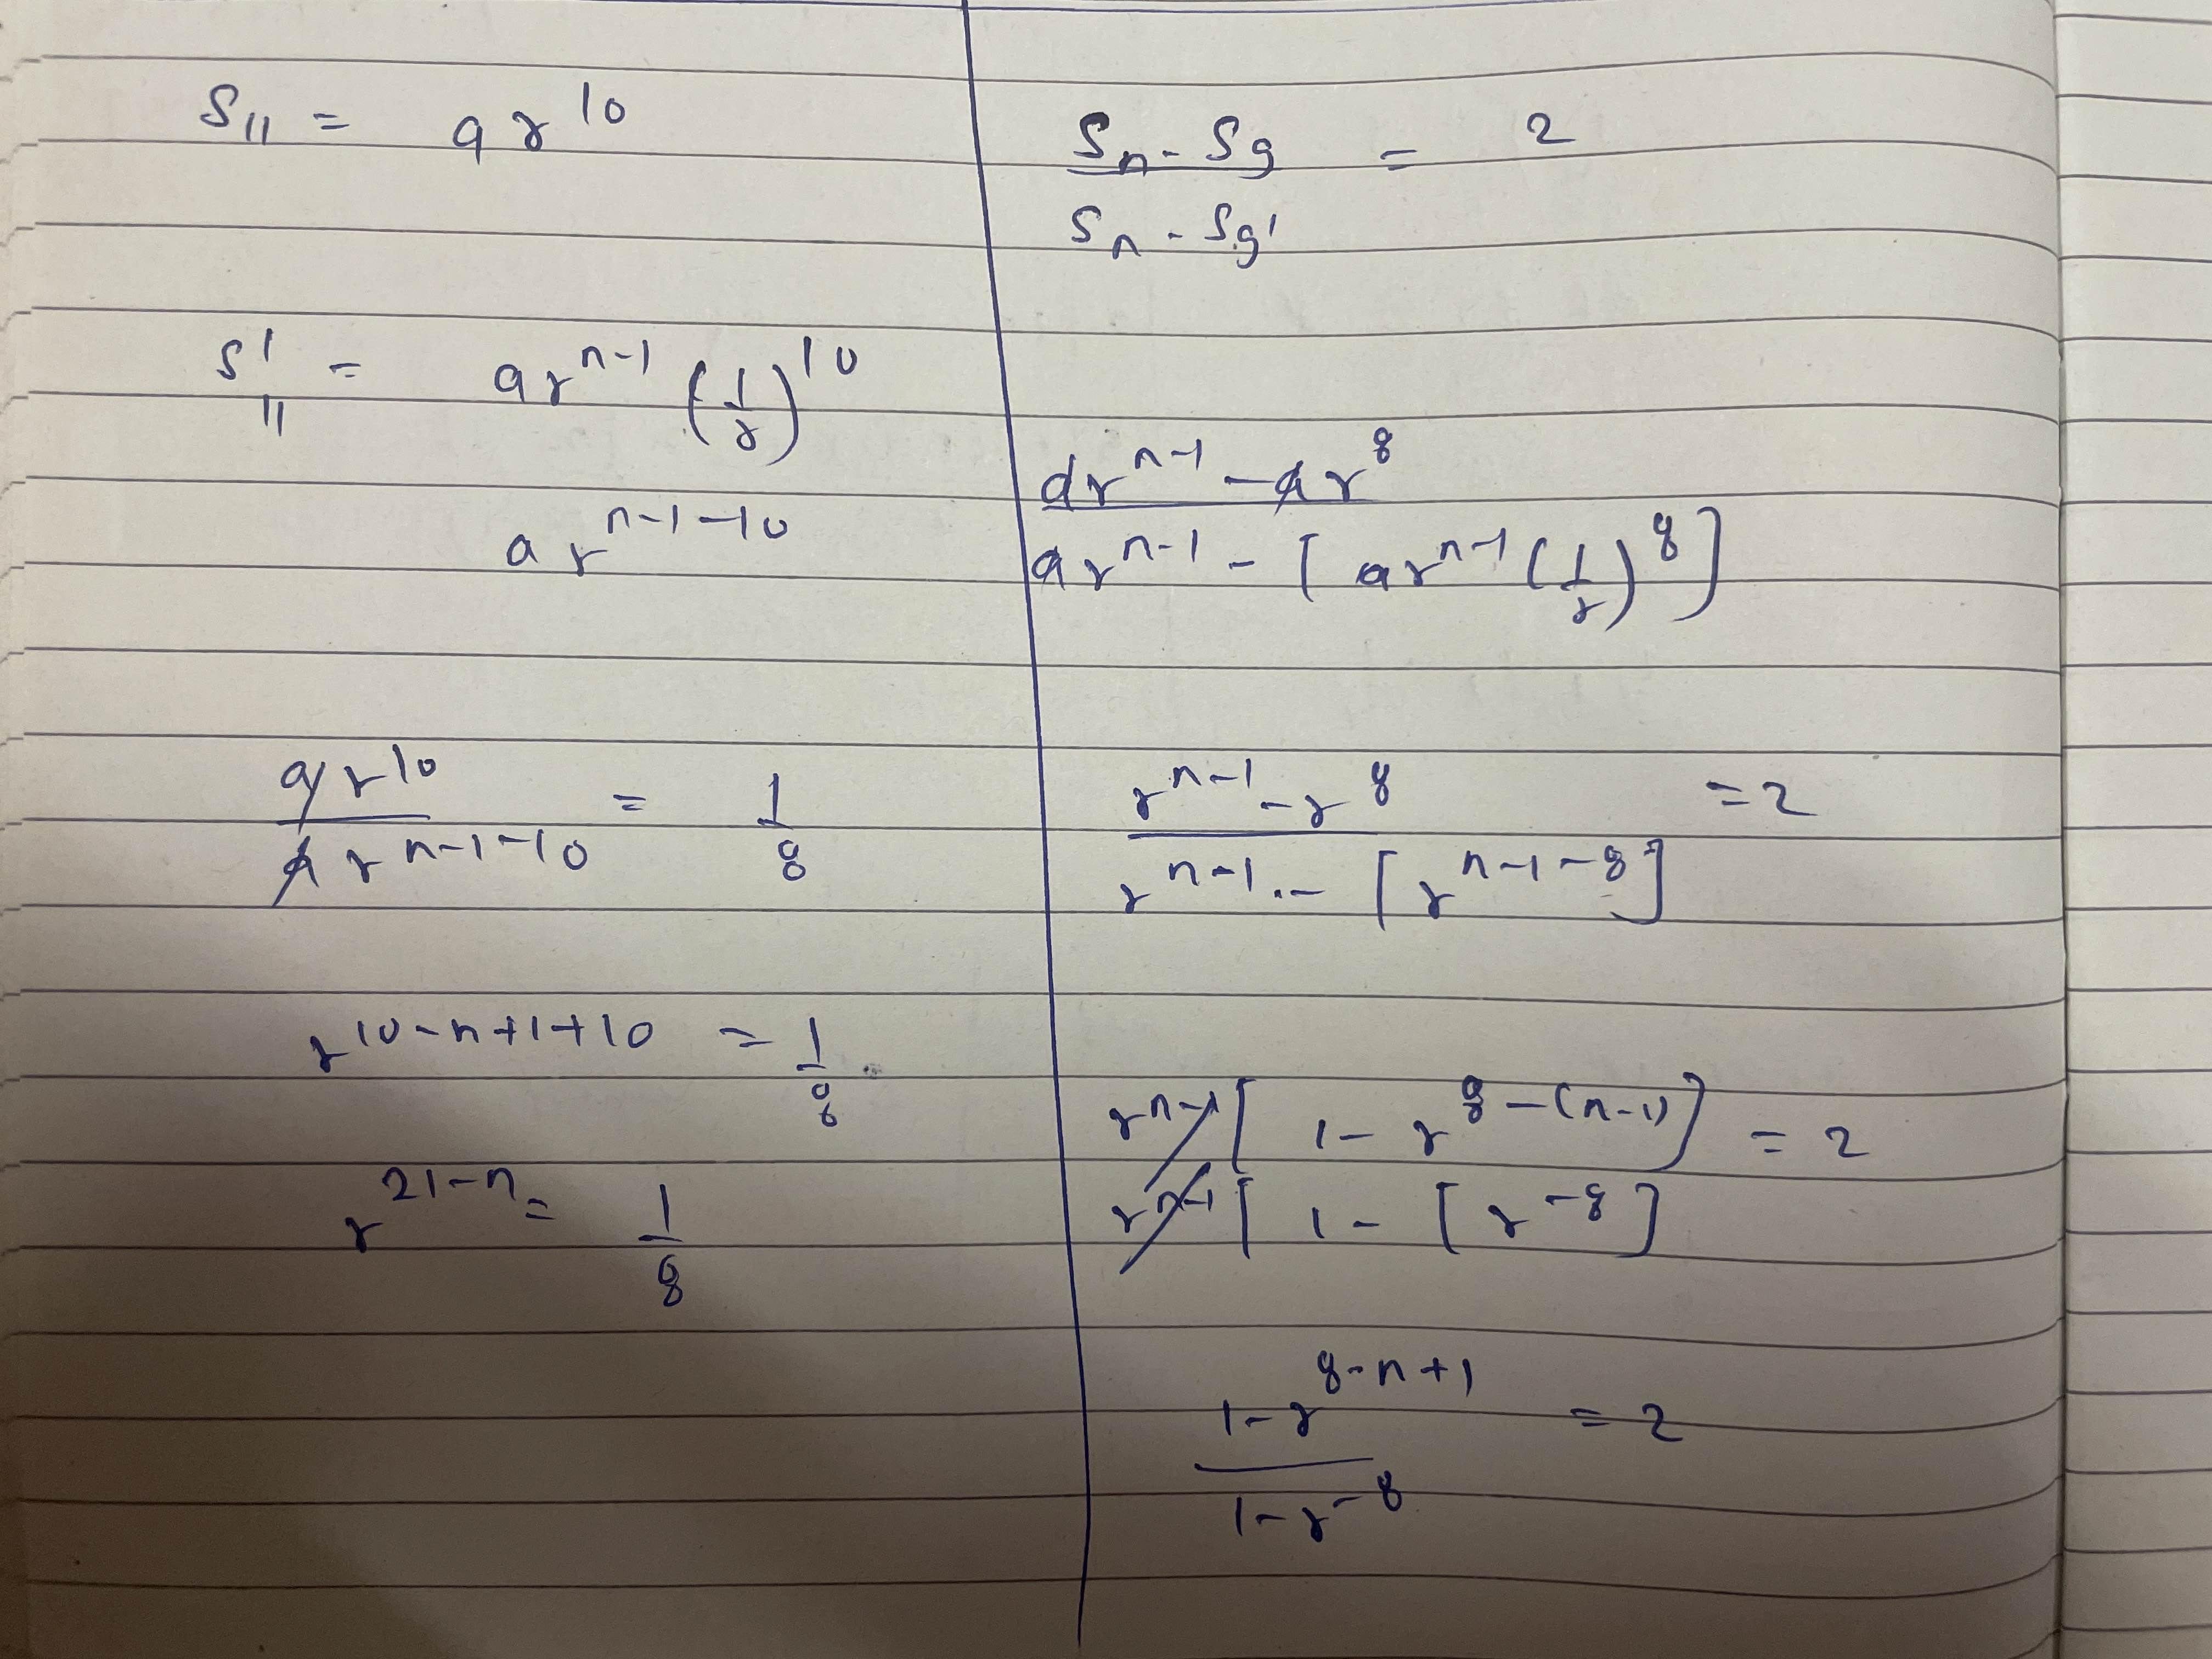 S₁₁ = ar¹⁰
S'₁₁ = arⁿ⁻¹ (1/r)¹⁰
arⁿ⁻¹⁻¹⁰
ar¹⁰ / arⁿ⁻¹⁻¹⁰ = 1/8
r¹⁰⁻ⁿ⁺¹⁺¹⁰ = 1/8
r²¹⁻ⁿ = 1/8
Sₙ - S₉ / Sₙ - S₉' = 2
arⁿ⁻¹ - ar⁸ / arⁿ⁻¹ - [arⁿ⁻¹ (1/r)⁸]
rⁿ⁻¹ - r⁸ / rⁿ⁻¹ - [rⁿ⁻¹⁻⁸] = 2
rⁿ⁻¹ [1 - r⁸⁻⁽ⁿ⁻¹⁾] / rⁿ⁻¹ [1 - [r⁻⁸] = 2
1 - r⁸⁻ⁿ⁺¹ / 1 - r⁻⁸ = 2